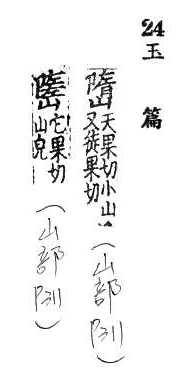 24 玉 篇
嶞 天果切小山
又徒果切
(山部
它果切
山皃
(山部